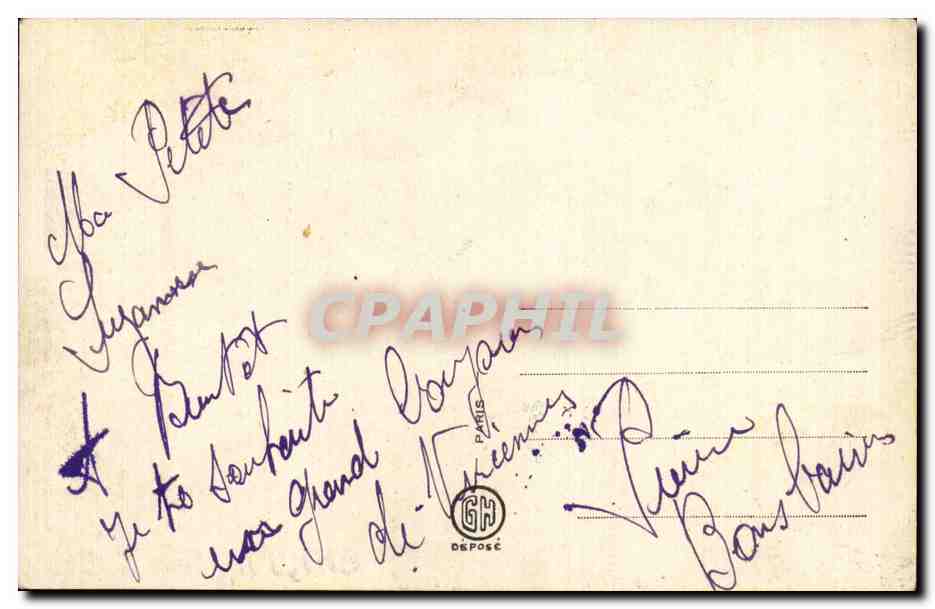 Ma Petite
Suzanne
A Bientôt
Je te souhaite
un grand Bonjour
de Vincennes
Pierre
CPAPHIL
PARIS
GH
DÉPOSÉ